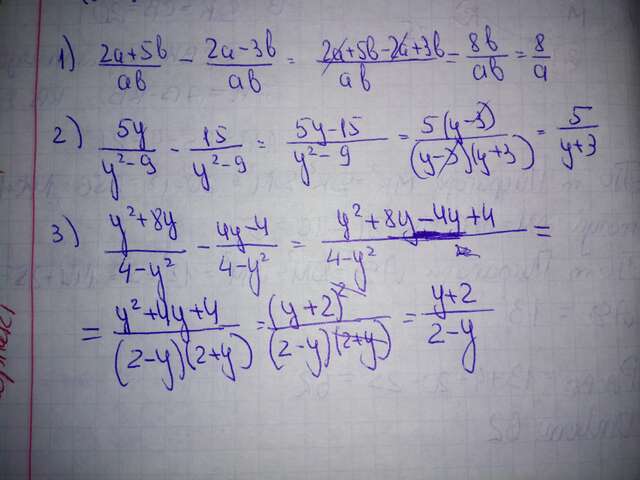 1) (2a+5b)/ab − (2a−3b)/ab = (2a+5b−2a+3b)/ab = 8b/ab = 8/a
2) 5y/(y²−9) − 15/(y²−9) = (5y−15)/(y²−9) = 5(y−3)/((y−3)(y+3)) = 5/(y+3)
3) (y²+8y)/(4−y²) − (4y−4)/(4−y²) = (y²+8y−4y+4)/(4−y²) =
= (y²+4y+4)/((2−y)(2+y)) = (y+2)²/((2−y)(2+y)) = (y+2)/(2−y)